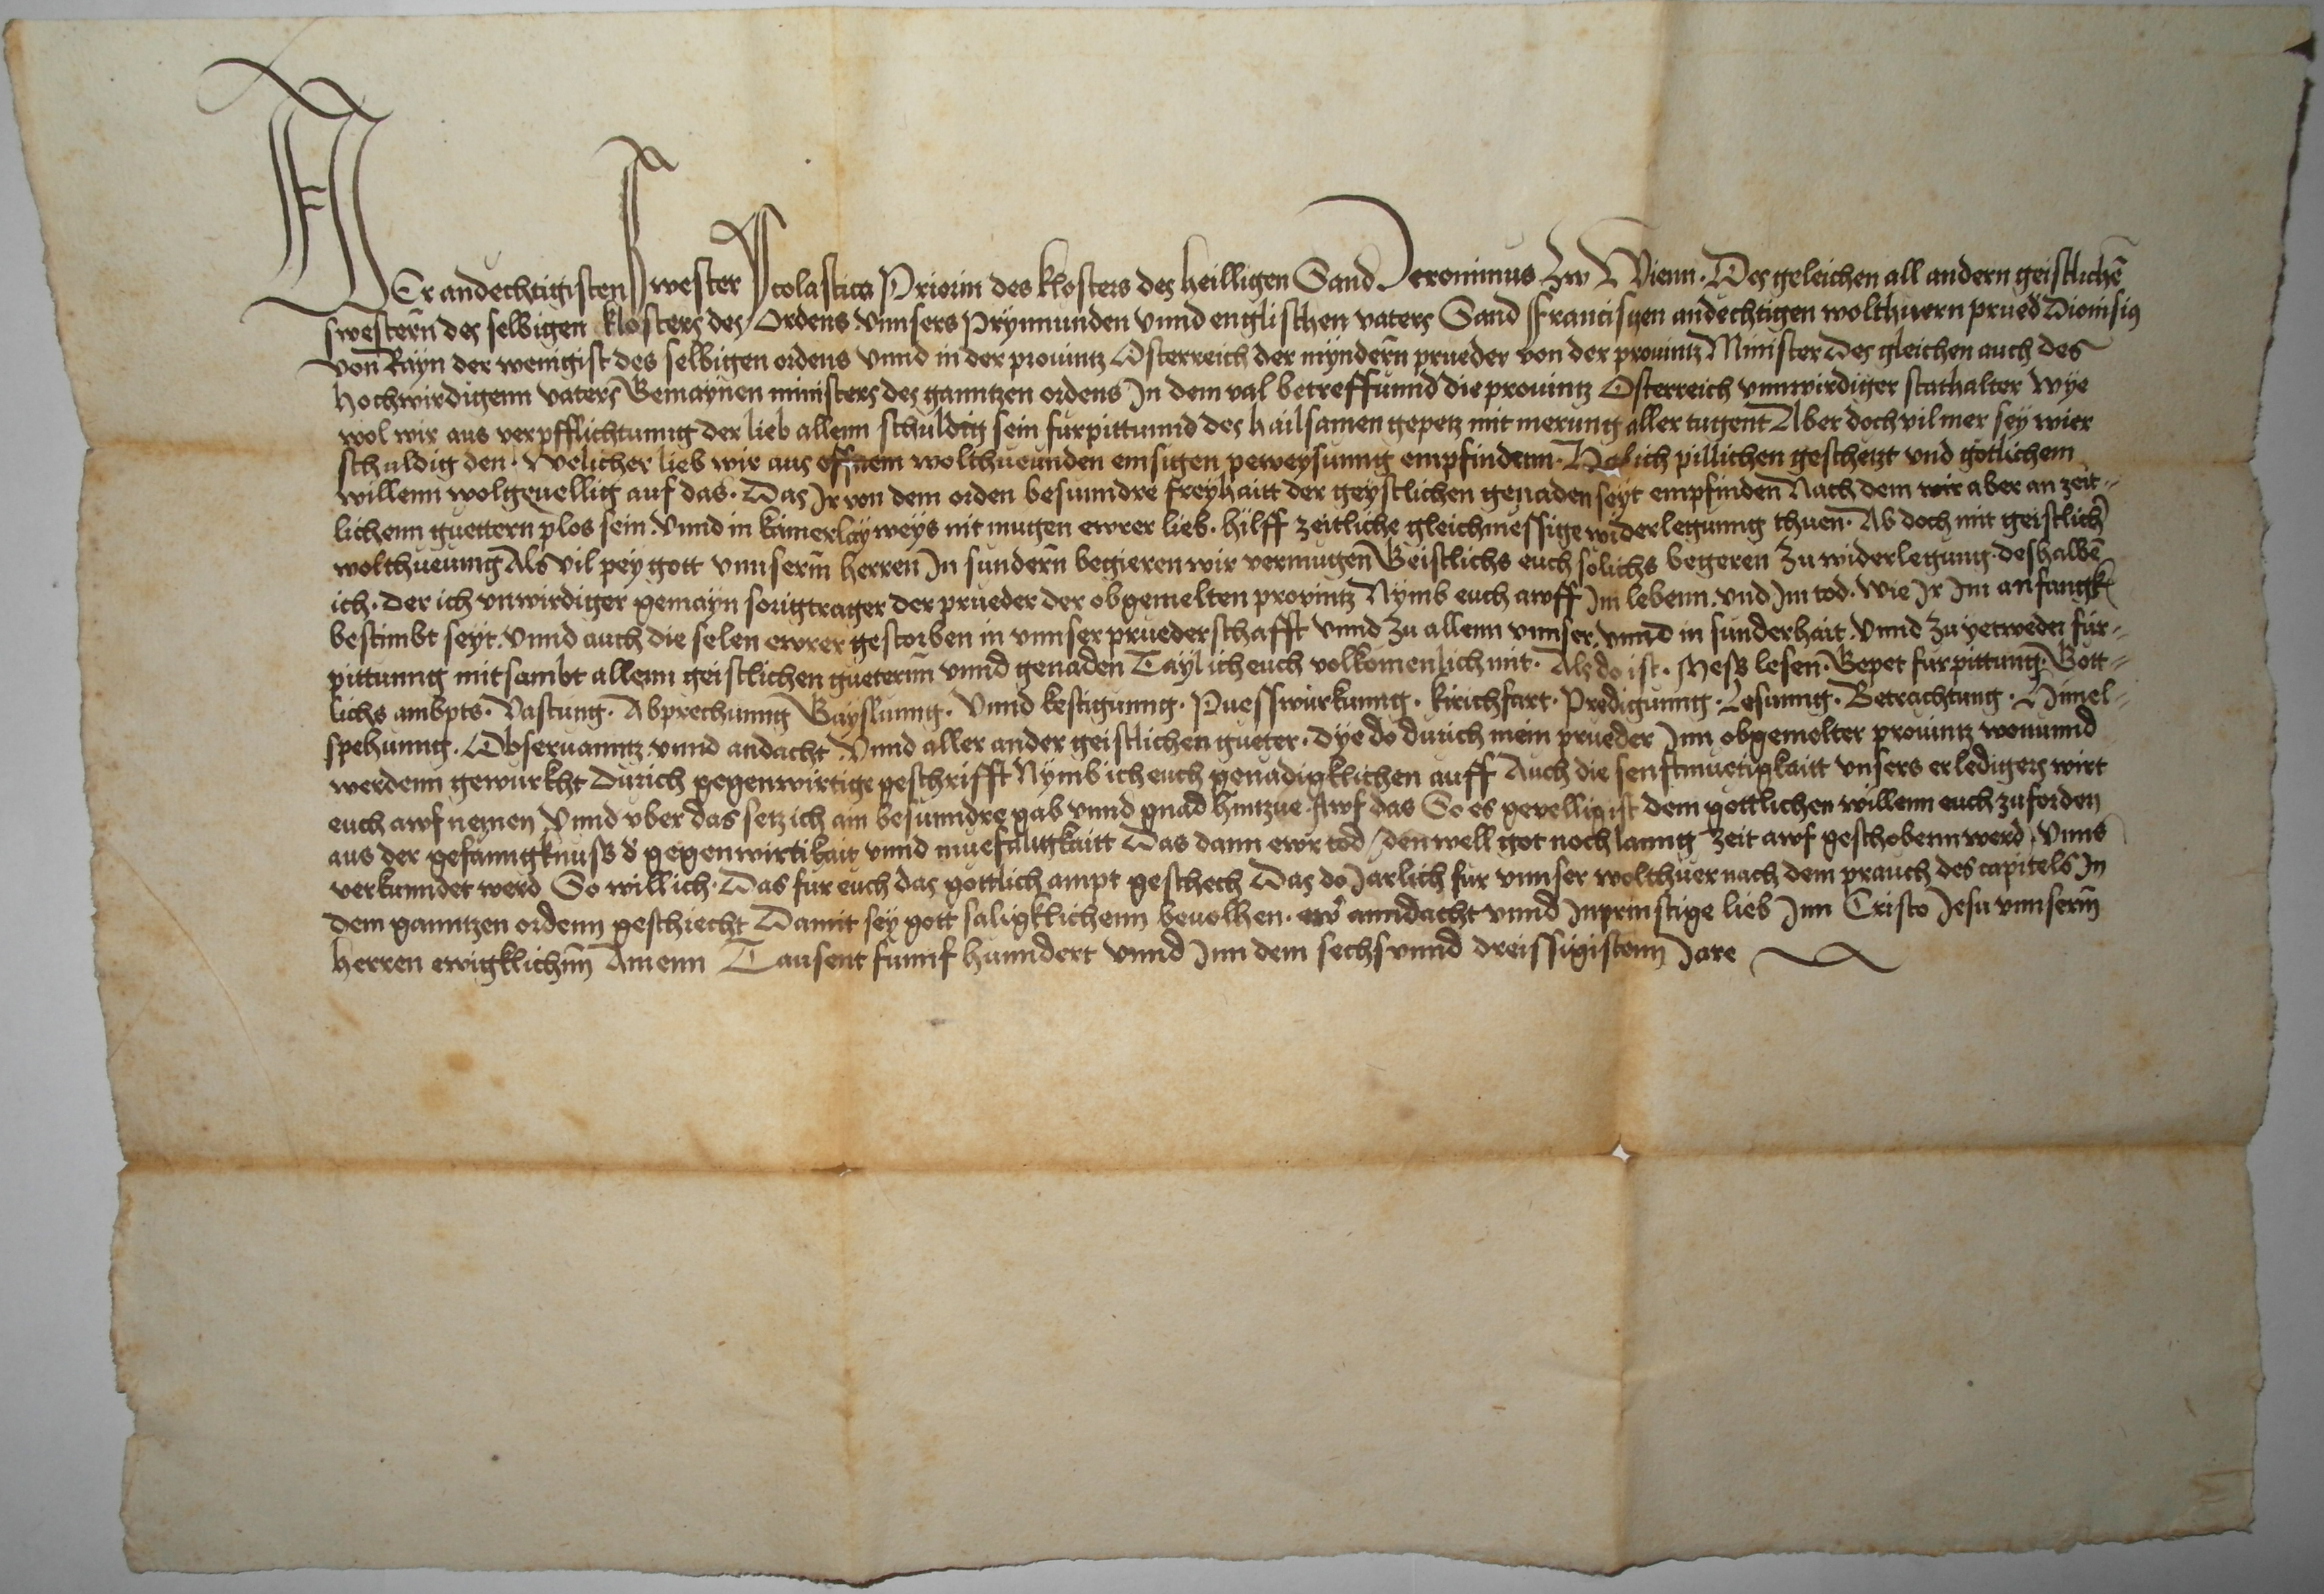 Der andechtigisten Swester Scolastica Priorin des klosters des heilligen Sand Jeronimus Zw Wienn. Des geleichen all andern geistlichē
swesterñ des selbigen klosters des Ordens vnnsers Prynnunden vnnd englischen vaters Sand Francisgen andechtigen wolthuern prued Dionisius
von Rayn der wenigist des selbigen ordens vnnd in der prouintz Osterreich der mynderñ prueder von der prouintz Minister Des gleichen auch des
hochwirdigenn vaters Gemaynen ministers des ganntzen ordens In dem val betreffunnd die prouintz Osterreich vnnwirdiger stathalter wye
wol wir aus verpfflichtunng der lieb allenn schuldig sein furpittunnd des hailsamen gepetz mit merung aller tugent Aber doch vil mer sey wier
schuldig den. Welicher lieb wir aus offnem wolthueunden emsigen peweysunng empfindenn. Hab ich pillichen geschetzt vnd gotlichem
willenn wolgeuellig auf das. Das Ir von dem orden besunndre freyhaitt der geystlichen genaden seyt empfinden Nach dem wir aber an zeit-
lichenn guettern plos sein. Vnnd in kainerlay weys nit mugen ewrer lieb. hilff zeitliche gleichmessige widerlegunng thuen. Ab doch mit geistlich
wolthueunng Als vil pey gott vnnserm̄ herren In sunderñ begieren wir vermugen Geistlichs euch solichs begeren zu widerlegung. deshalbē
ich. Der ich vnwirdiger gemayn sorigtrager der prueder der obgemelten prouintz Nymb euch awff Im lebenn. vnd Im tod. wie Ir Im anfangk
bestimbt seyt. Vnnd auch die selen ewrer gestorben in vnnser pruederschafft vnnd zu allenn vnnser. vnnd in sunderhait. Vnnd zu yetweder fur-
pittunng mitsambt allenn geistlichen gueternn vnnd genaden Tayl ich euch volkomenlich mit. Als do ist. Meß lesen. Gepet furpittung. Gott-
lichs ambpts. Vastung. Abprechunng Gayslunng. Vnnd kestigunng. Puesswurkunng. kirichfart. Predigunng. Lesunng. Betrachtung. Himel-
spehunng. Obseruanntz vnnd andacht Vnnd aller ander geistlichen gueter. Dye do durich mein prueder Inn obgemelter prouintz wonunnd
werdenn gewurkht Durich gegenwirtige geschrifft Nymb ich euch genadigklichen auff Auch die senftmuetigkaitt vnsers erledigers wirt
euch awf nemen Vnnd vber das setz ich ain besunndre gab vnnd gnad hintzue. Awf das So es gevellig ist dem gottlichen willenn euch zuforden
aus der gefanngknuß d gegenwirtikait vnnd muesaligkaitt Das dann ewr tod / den well got noch lanng zeit awf geschobenn werd / Vnns
verkunndet werd So will ich. Das fur euch das gottlich ampt geschech Das do Jarlich fur vnnser wolthuer nach dem prauch des capitels In
dem ganntzen ordenn geschiecht Damit sey gott saligklichenn beuolhen. ewr anndacht vnnd Inprinstige lieb Inn Cristo Jesu vnnserm̄
herren ewigklichnn Amenn Tausent funnf hunndert vnnd Inn dem sechs vnnd dreissigistenn Jare